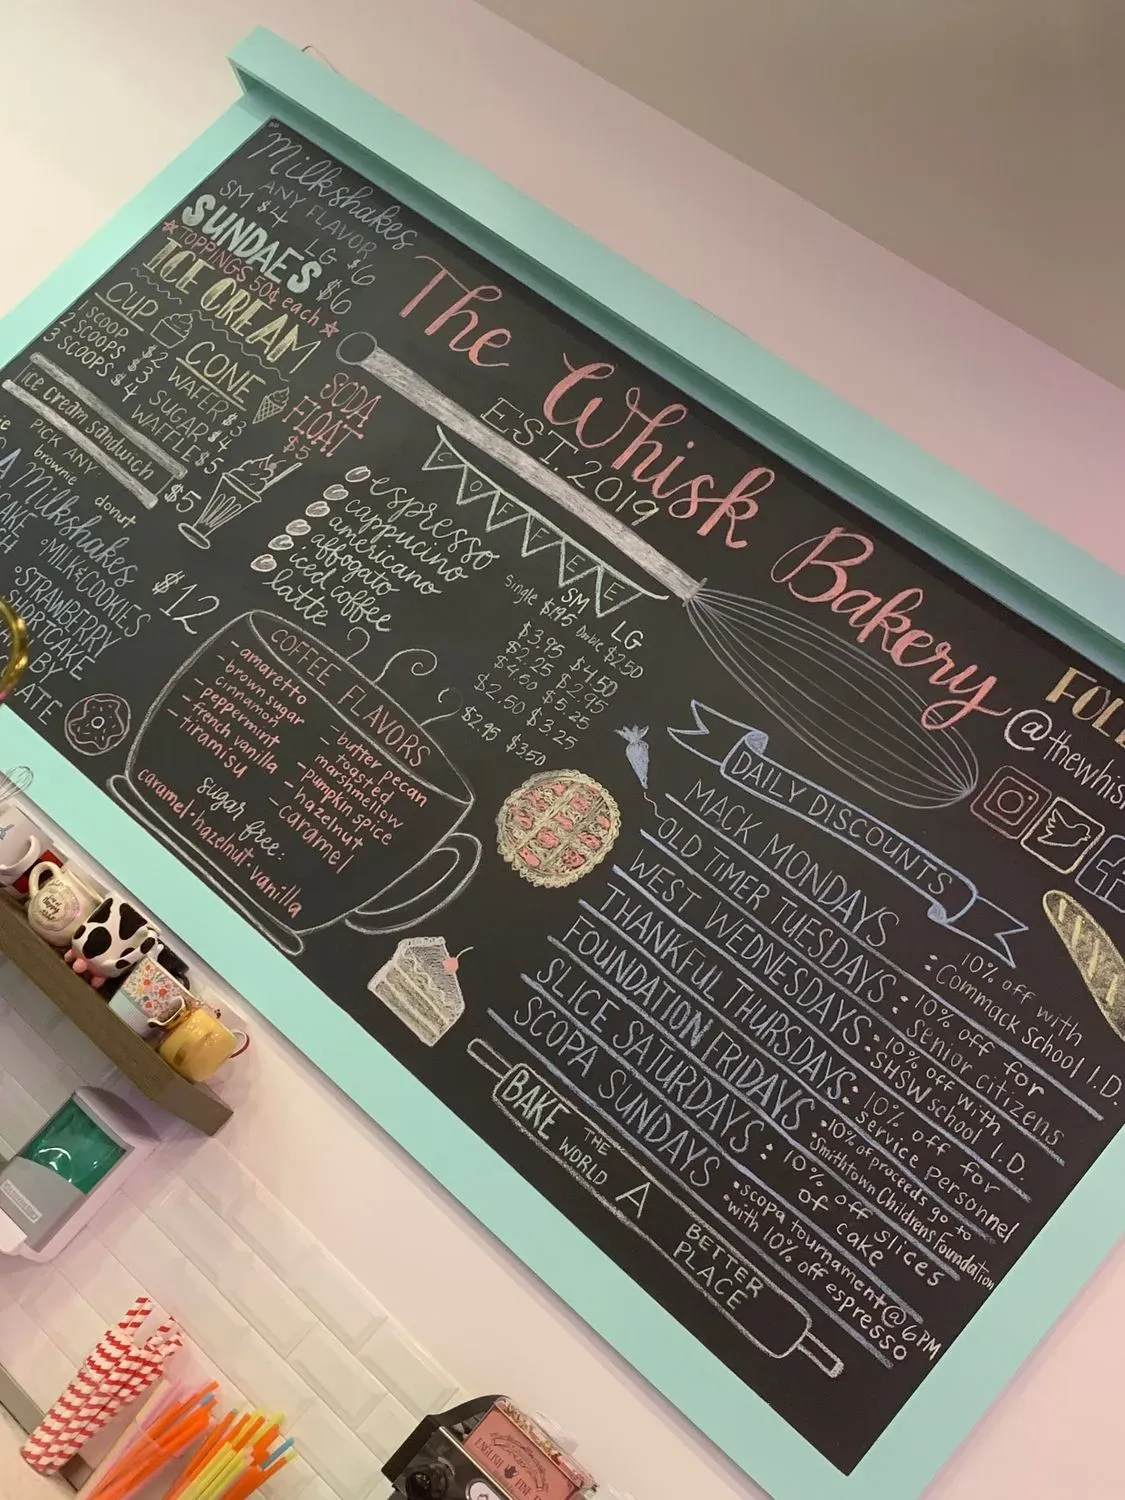 Milkshakes
ANY FLAVOR
SM $4 LG $6
SUNDAES $6
TOPPINGS 50¢ each
ICE CREAM
CUP
1 SCOOP $2
2 SCOOPS $3
3 SCOOPS $4
CONE
WAFER $3
SUGAR $4
WAFFLE $5
ice cream sandwich
PICK ANY:
brownie donut
$5
SODA
FLOAT
$5
Milkshakes
$12
MILK & COOKIES
STRAWBERRY
SHORTCAKE
BY
The Whisk Bakery
EST. 2019
COFFEE
SM LG
espresso Single $1.95 Double $2.50
cappucino $3.95 $4.50
americano $2.25 $2.75
affogato $4.50 $5.25
iced coffee $2.50 $3.25
latte $2.95 $3.50
COFFEE FLAVORS
- amaretto
- brown sugar
cinnamon
- peppermint
- french vanilla
- tiramisu
- butter pecan
- toasted
marshmellow
- pumpkin spice
- hazelnut
- caramel
sugar free:
caramel • hazelnut • vanilla
DAILY DISCOUNTS
MACK MONDAYS • 10% off with
Commack School I.D.
OLD TIMER TUESDAYS • 10% off for
senior citizens
WEST WEDNESDAYS • 10% off with
SHSW school I.D.
THANKFUL THURSDAYS • 10% off for
service personnel
FOUNDATION FRIDAYS • 10% of proceeds go to
Smithtown Childrens Foundation
SLICE SATURDAYS • 10% off slices
of cake
SCOPA SUNDAYS • scopa tournament @ 6PM
• with 10% off espresso
BAKE THE WORLD A BETTER PLACE
ENGLISH